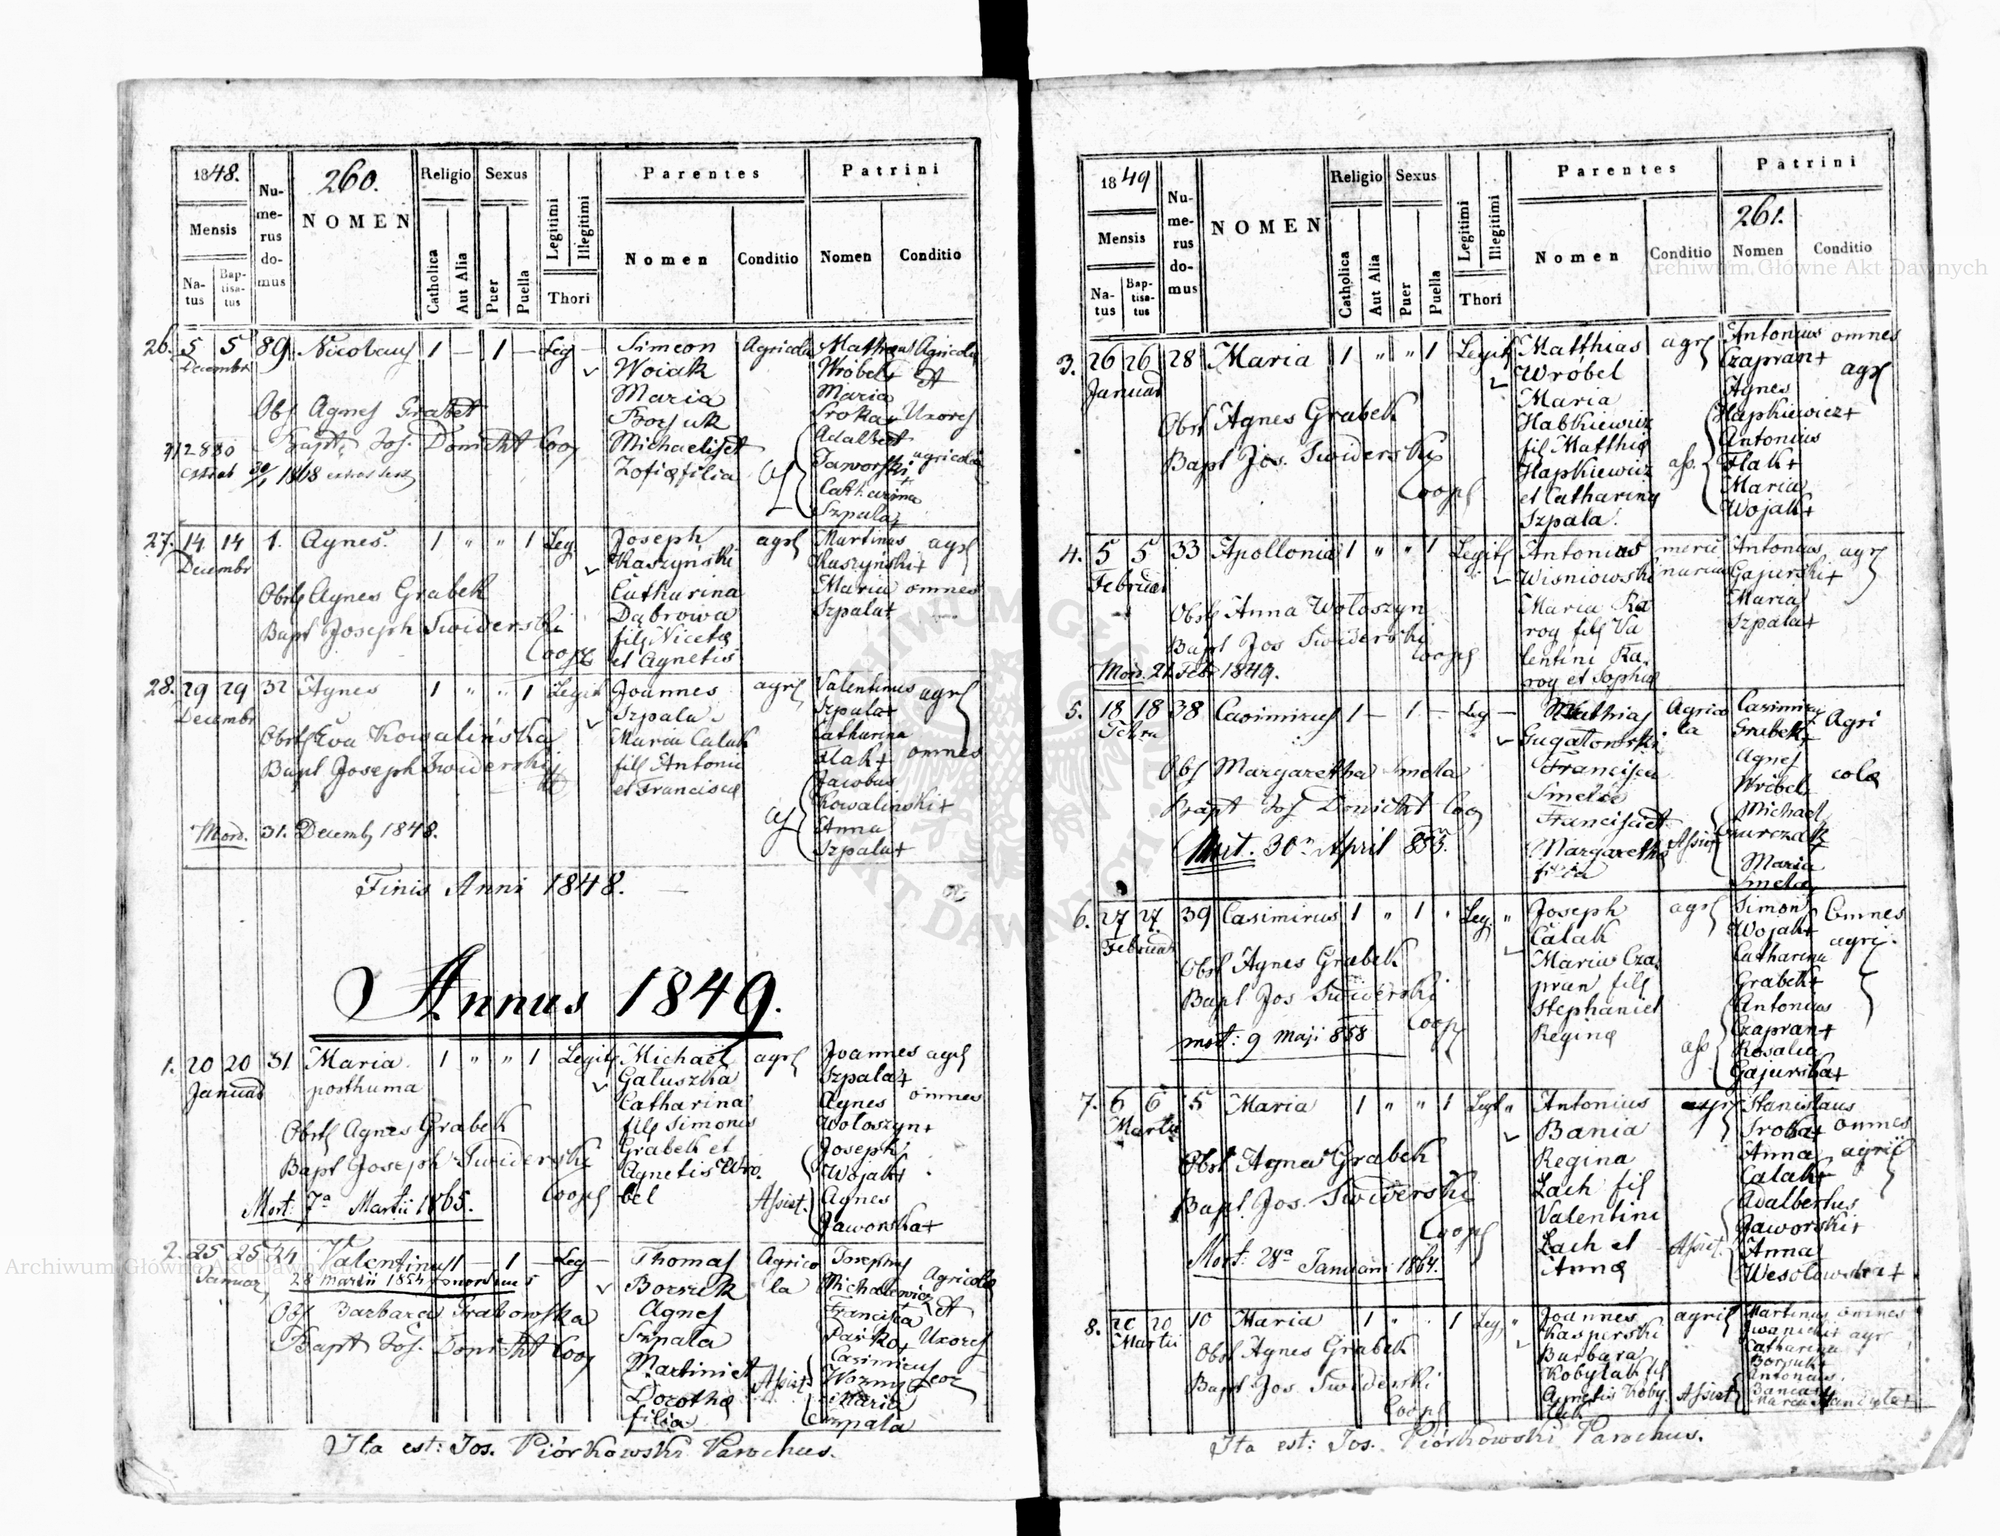 1848.
Numerus domus
260.
NOMEN
Religio
Sexus
Legitimi
Illegitimi
Parentes
Patrini
Mensis
Natus
Baptisatus
Catholica
Aut Alia
Puer
Puella
Thori
Nomen
Conditio
Nomen
Conditio
26. 5 5 89 Nicolaus 1 – 1 – Leg – Simeon Agricola
Decembr Woiak
Maria
Obs Agnes Grabek
Bapt. Jos. Donicht Coop
Michaelis et
Zofia filia
Wrobel+ et
Maria
Sroka+ Uxores
Adalbert
Jaworski+ agricola
Catharina
Szpala+
27. 14 14 1. Agnes. 1 " " 1 Leg. Joseph agr Martinus agr
Decembr Kaszyński Kaszyński+
Catharina Maria omnes
Obst Agnes Grabek Dąbrowa Szpala+
Bapt Joseph Swiderski fil Niceta
Coop et Agnetis
28. 29 29 32 Agnes 1 " " 1 Legit Joannes agr Valentinus agr
Decembr Szpala Szpala+
Obst Eva Kowalińska Maria Calak Catharina
Bapt Joseph Swiderski fil Antoni Flak+ omnes
et Francisca Jacobus
Kowalinski+
Mord. 31. Decemb 1848. Anna
Szpala+
Finis Anni 1848.
Annus 1849.
1. 20 20 31 Maria 1 " " 1 Legit Michael agr Joannes agr
Januar posthuma Gałuszka Szpala+
Catharina Agnes omnes
Obst Agnes Grabek fil Simonis Wołoszyn+
Bapt Joseph Swiderski Grabek et Joseph
Agnetis Wro- Wojak+
Mort: 7a Martii 1865. Coop bel Assist. Agnes
Jaworska+
2. 25 25 24 Valentinus 1 – 1 – Leg – Thomas Agrico Josephus
Januar 28 Martii 1854 mortuus Borsuk la Michalewicz Agricola
Obs Barbara Grabowska Agnes Francisca et
Bapt Jos. Donicht Coop Szpala Pasko+ Uxores
Martini et Assist Casimirus
Dorothea Maria
filia Szpala
Ita est: Jos. Piórkowski Parochus.
1849
Numerus domus
NOMEN
Religio
Sexus
Legitimi
Illegitimi
Parentes
Patrini
261.
Mensis
Natus
Baptisatus
Catholica
Aut Alia
Puer
Puella
Thori
Nomen
Conditio
Nomen
Conditio
3. 26 26 28 Maria 1 " " 1 Legit Matthias agr Antonius omnes
Januar Wrobel Czapran+
Maria Agnes agr
Obst Agnes Grabek Habkiewicz Hapkiewicz+
Bapt Jos. Swiderski fil Matthia Antonius
Coop Hapkiewicz ass. Flak+
et Catharina Maria
Szpala. Wojak+
4. 5 5 33 Apollonia 1 " " 1 Legit Antonius merce Antonius agr
Februar Wisniowski narius Gajurski+
Obst Anna Wołoszyn Maria Ka Maria
Bapt Jos Swiderski rog fil Va Szpala+
Coop lentini Ka
Mord. 21 Febr 1849. rog et Sophia
5. 18 18 38 Casimirus 1 – 1 – Leg – Mathias Agrico Casimirus Agri
Febru Gugałowski la Grabek+
Obs Margaretha Smela Francisca Agnes cola
Bapt Jos Donicht Coop Smela Wrobel
Francisci et Michael
Mort. 30 April 855. Margaretha Assist
filia Maria
Smela
6. 27 27. 39 Casimirus 1 " 1 " Leg. " Joseph agr Simon Omnes
Februar Calak Wojak+ agri.
Obst Agnes Grabek Maria Cza- Catharina
Bapt Jos. Swiderski pran fil Grabek+
Coop Stephani et Antonius
mort: 9 Maji 858 Regina ass Czapran+
Rosalia
Gajurska+
7. 6 6 5 Maria 1 " " 1 Legt " Antonius agr Stanislaus
Martii Bania Sroka+ omnes
Obst Agnes Grabek Regina Anna agri
Bapt Jos. Swiderski Lach fil Calak+
Coop Valentini Adalbertus
Lach et Assist. Jaworski+
Mort: 28a Januarii 1864. Anna Anna
Wesołowska+
8. 20 20 10 Maria 1 " . 1 Leg. " Joannes agric Martinus omnes
Martii Kasperski Iwanicki agr
Obst Agnes Grabek Barbara Catharina
Bapt Jos. Swiderski Kobylak fil Borsuk+
Coop Agnetis Koby- Assist Antonius
lak
Ita est: Jos. Piórkowski Parochus.
Archiwum Główne Akt Dawnych
Archiwum Główne Akt Dawnych
ARCHIWUM GŁÓWNE AKT DAWNYCH